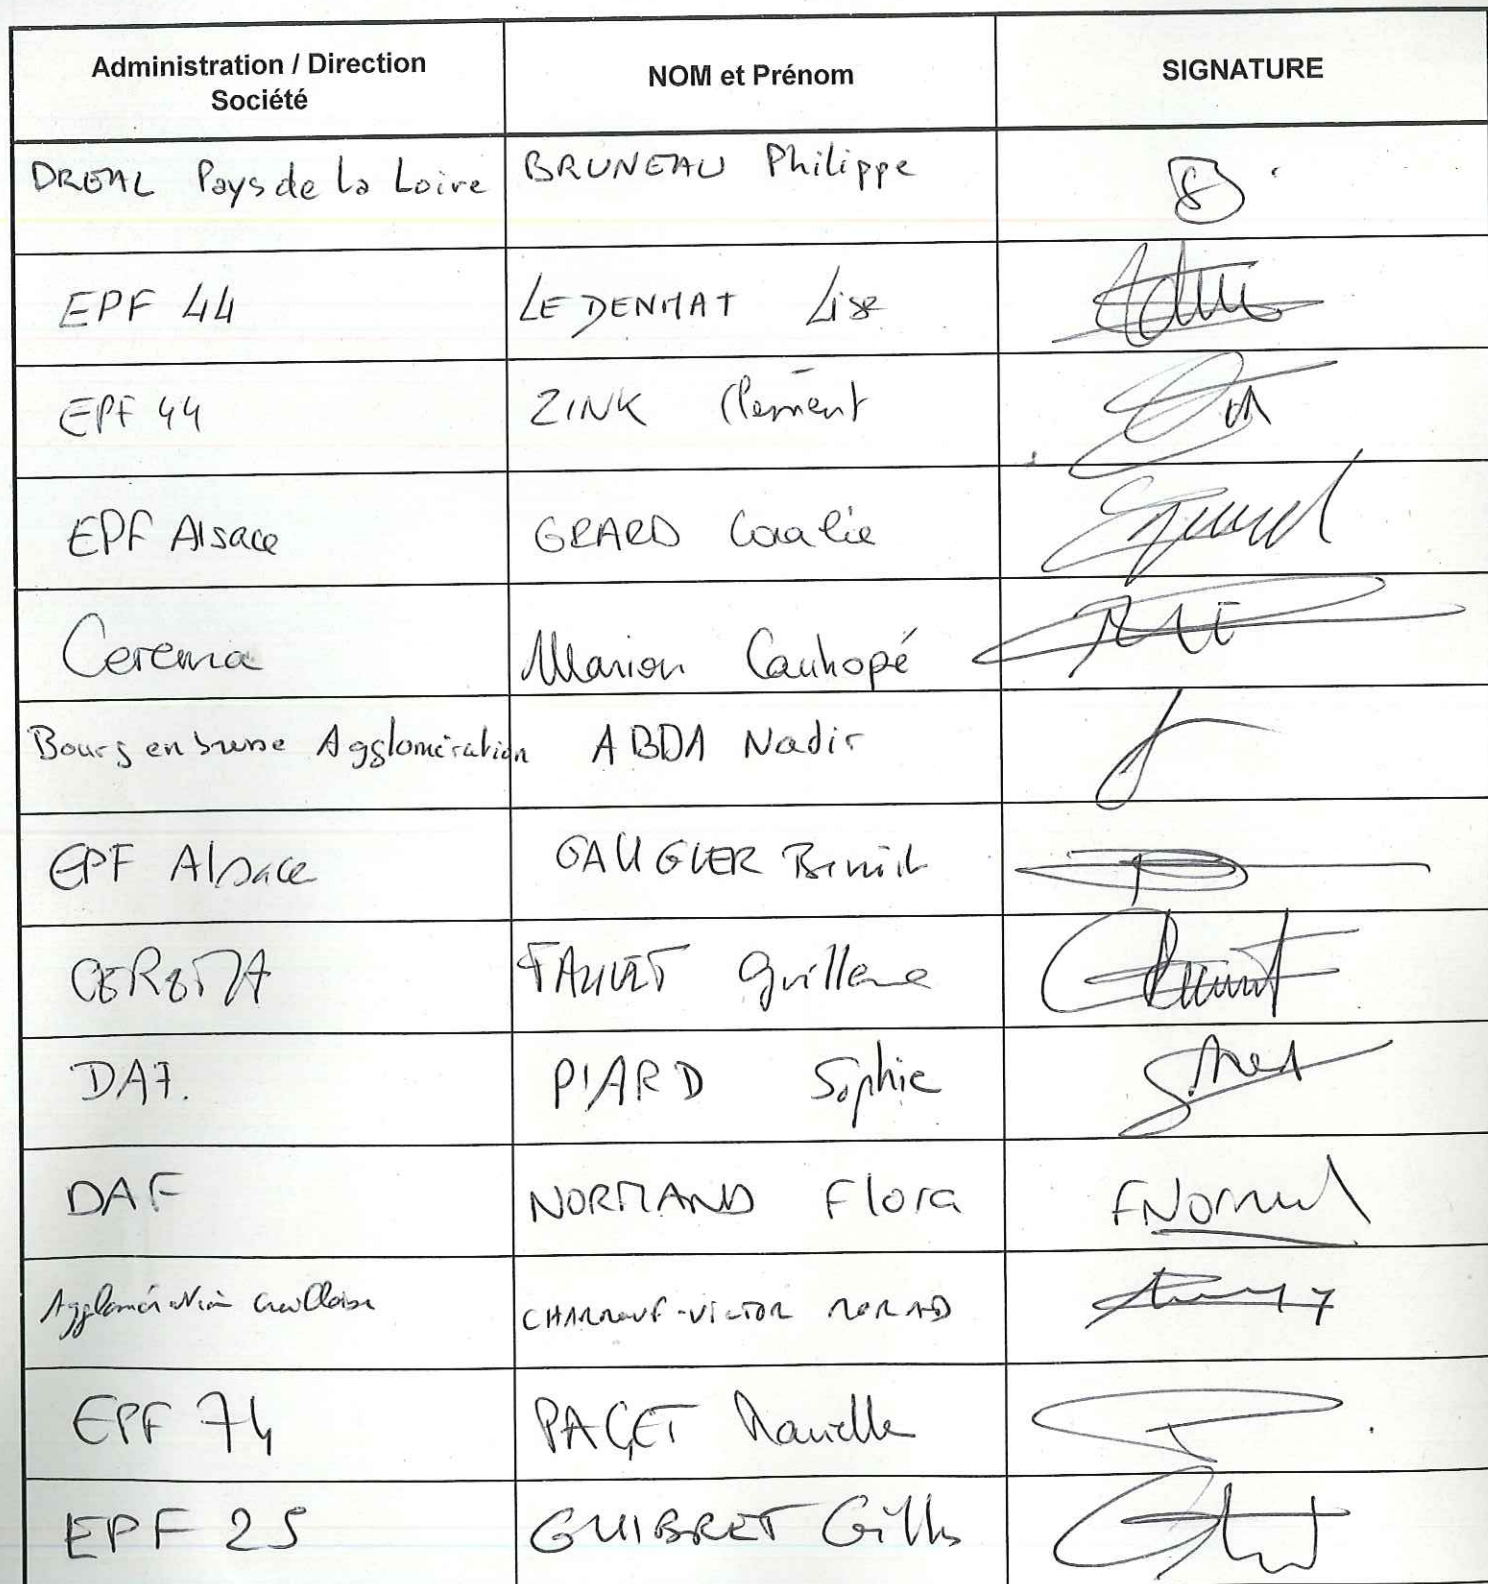 Administration / Direction
Société
NOM et Prénom
SIGNATURE
DREAL Pays de la Loire BRUNEAU Philippe
EPF 44 LE DENMAT Lise
EPF 44 ZINK Clément
EPF Alsace GRARD Coralie
Cerema Marion Cauhopé
Bourg en bresse Agglomération ABDA Nadir
EPF Alsace GAUGLER Benoit
CEREMA FAUVET Guillaume
DAF. PIARD Sophie
DAF NORMAND Flora FNormand
Agglomération creilloise
EPF 74 PAGET
EPF 25 GUIBRET Gilles